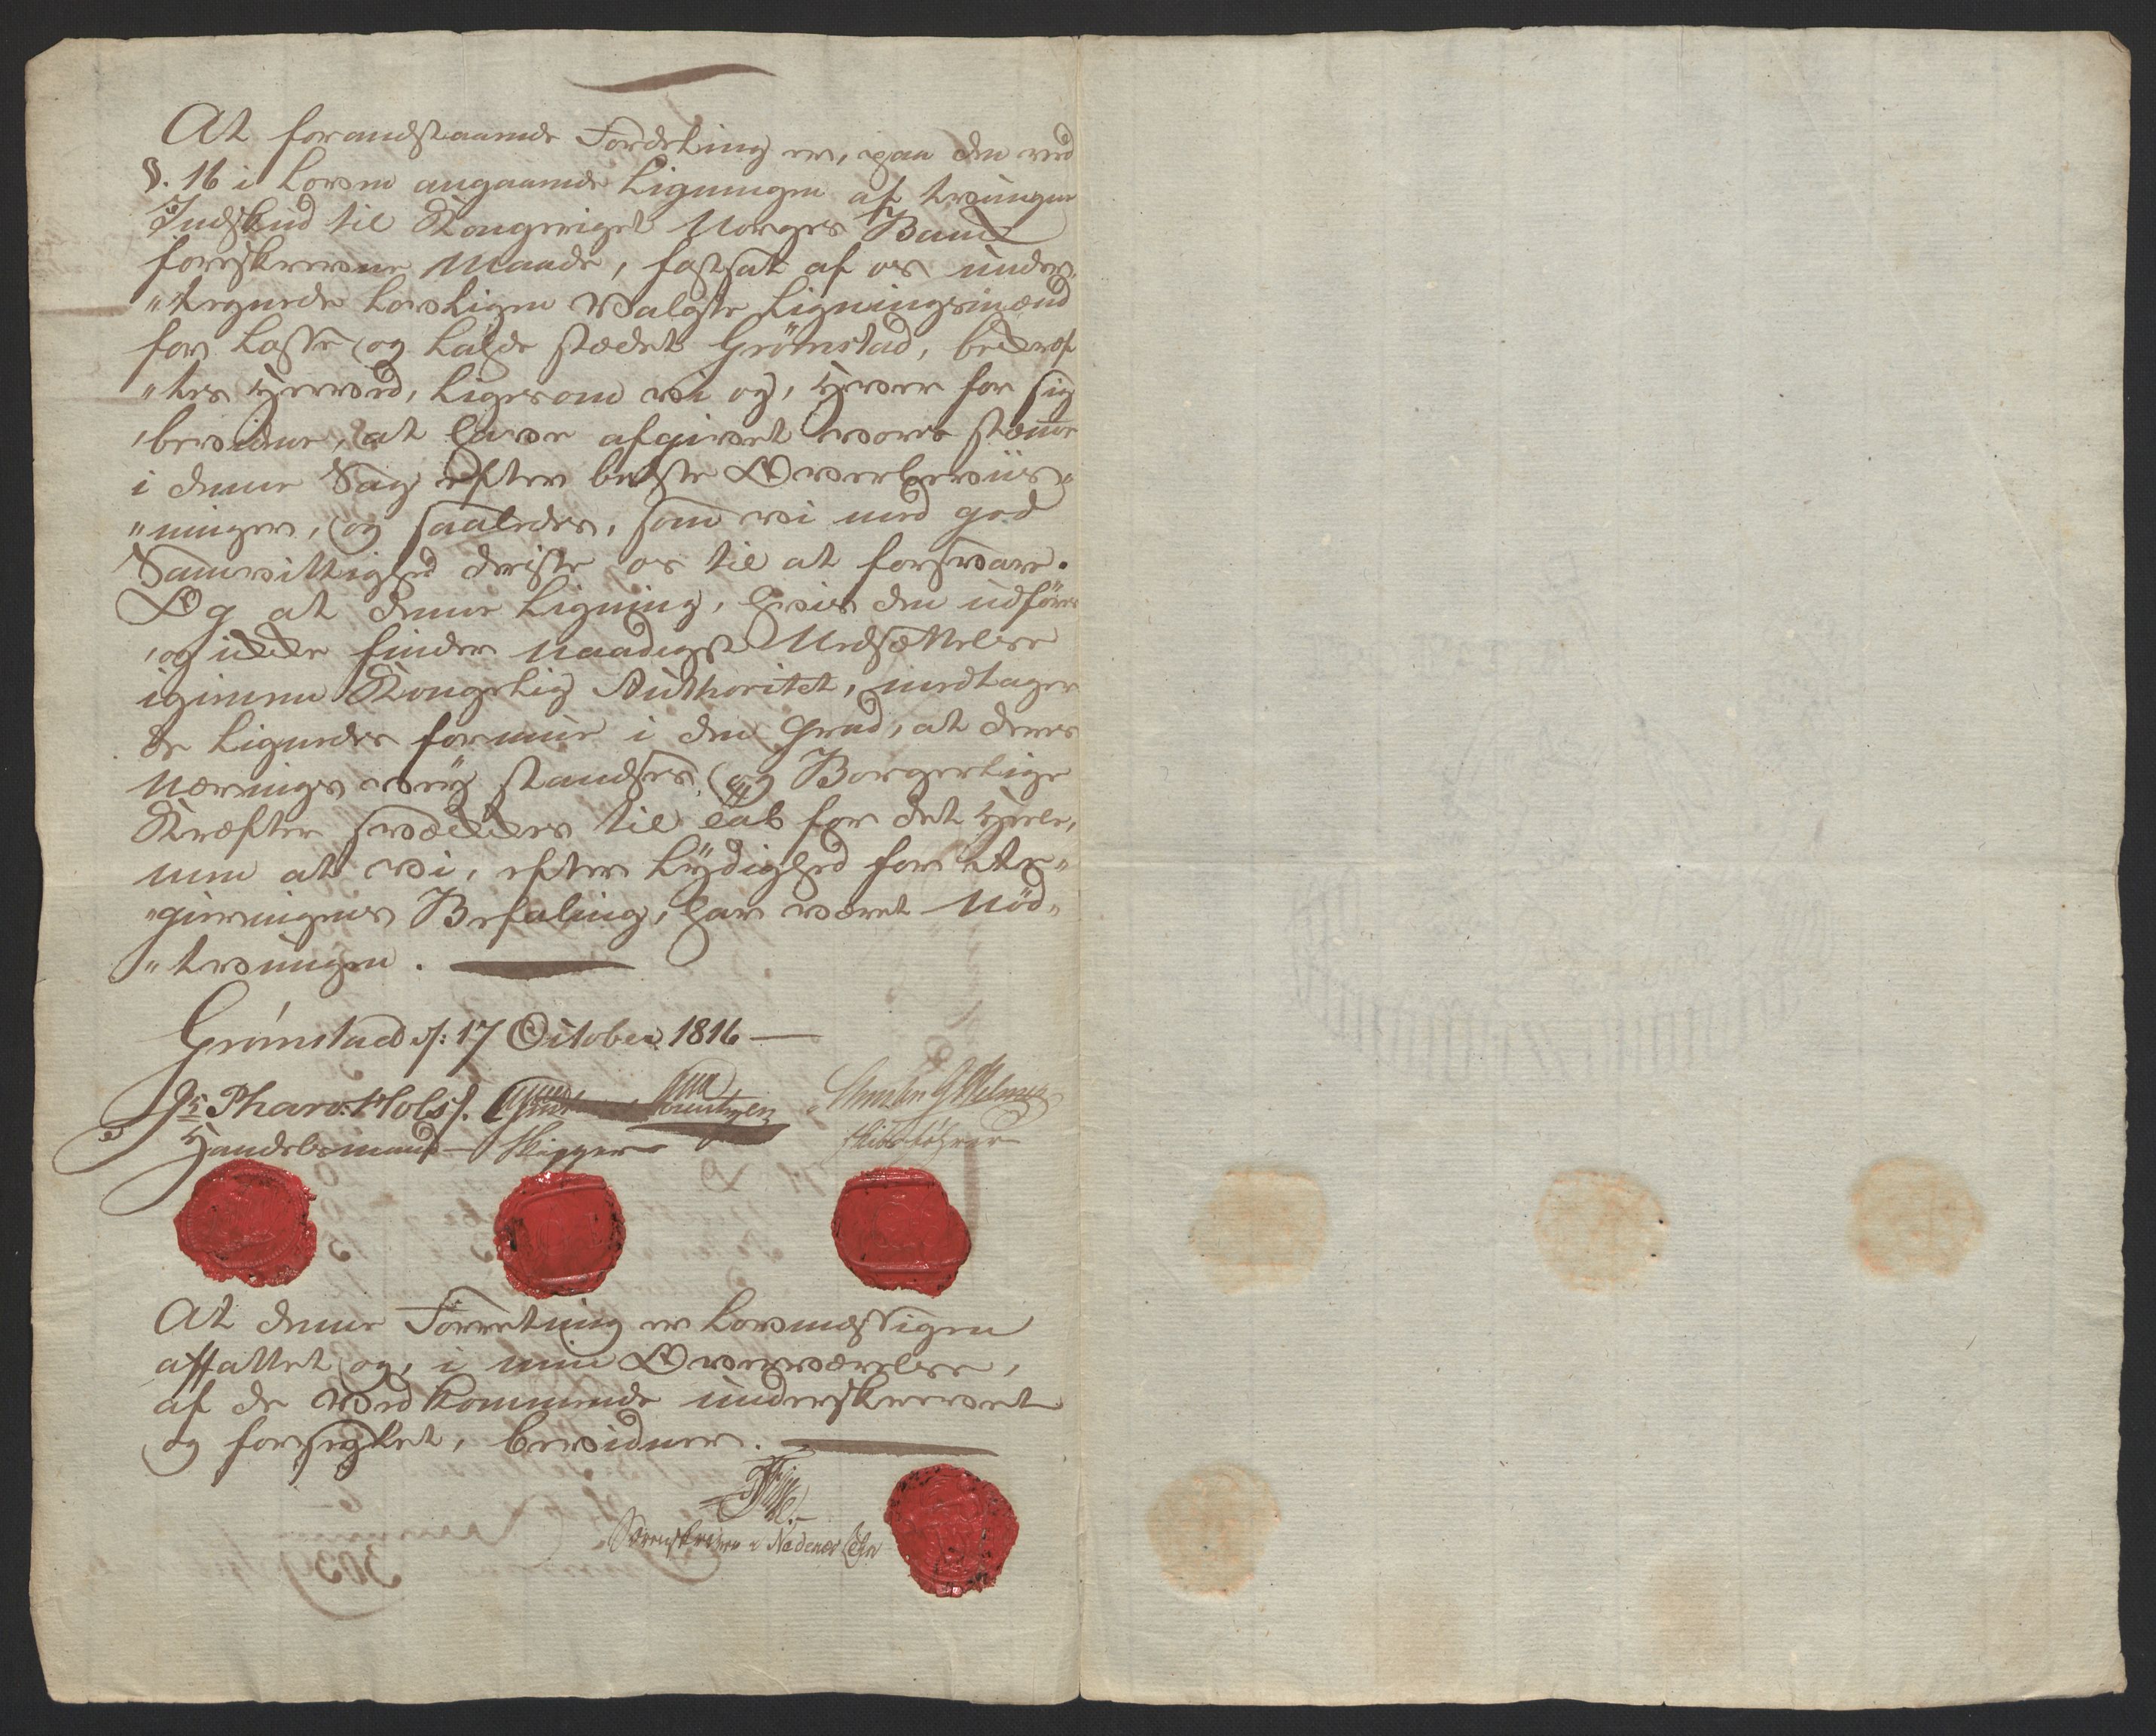 At foranstaaende Fordeling er, paa den ved
§. 16 i Loven angaaende Ligningen af tvungen
Indskud til Kongeriget Norges Bank
foreskrevne Maade, fastsat af os under„
„tegnede lovligen valgte Ligningsmænd
for Losse og Ladestædet Grømstad, bekræf
„tes herved, ligesom vi og, hver for sig
bevidne, at have afgivet vores stæmme
i denne Sag efter bedste Overbeviis„
„ninger, og saaledes, som vi med god
Samvittighed driste os til at forsvare.
Og at denne Ligning, hvis den udføres
og ikke finder naadigst Nedsættelse
igiennem Kongelig Authoritet, medtager
de Lignedes formue i den Grad, at deres
Nærings vej standses og Borgerlige
Kræfter svækkes til Tab for det heele,
men at vi, efter Lydighed for Re„
„gieringens Befaling, har været nød„
„tvungen.
Grømstad d: 17 October 1816
Js Pharo Holst.
Handelsmand Skipper Skibsfører
At denne Forretning er lovmæssigen
affattet og, i min Overværelse,
af de vedkommende underskrevet
og forseglet, bevidner.
Sorenskriver i Nedenes Lehn